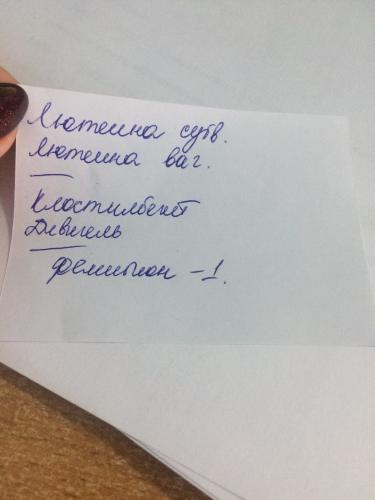 Лютеина субв.
Лютеина ваг.
Клостилбегит
Дивигель
Фемибион -1.